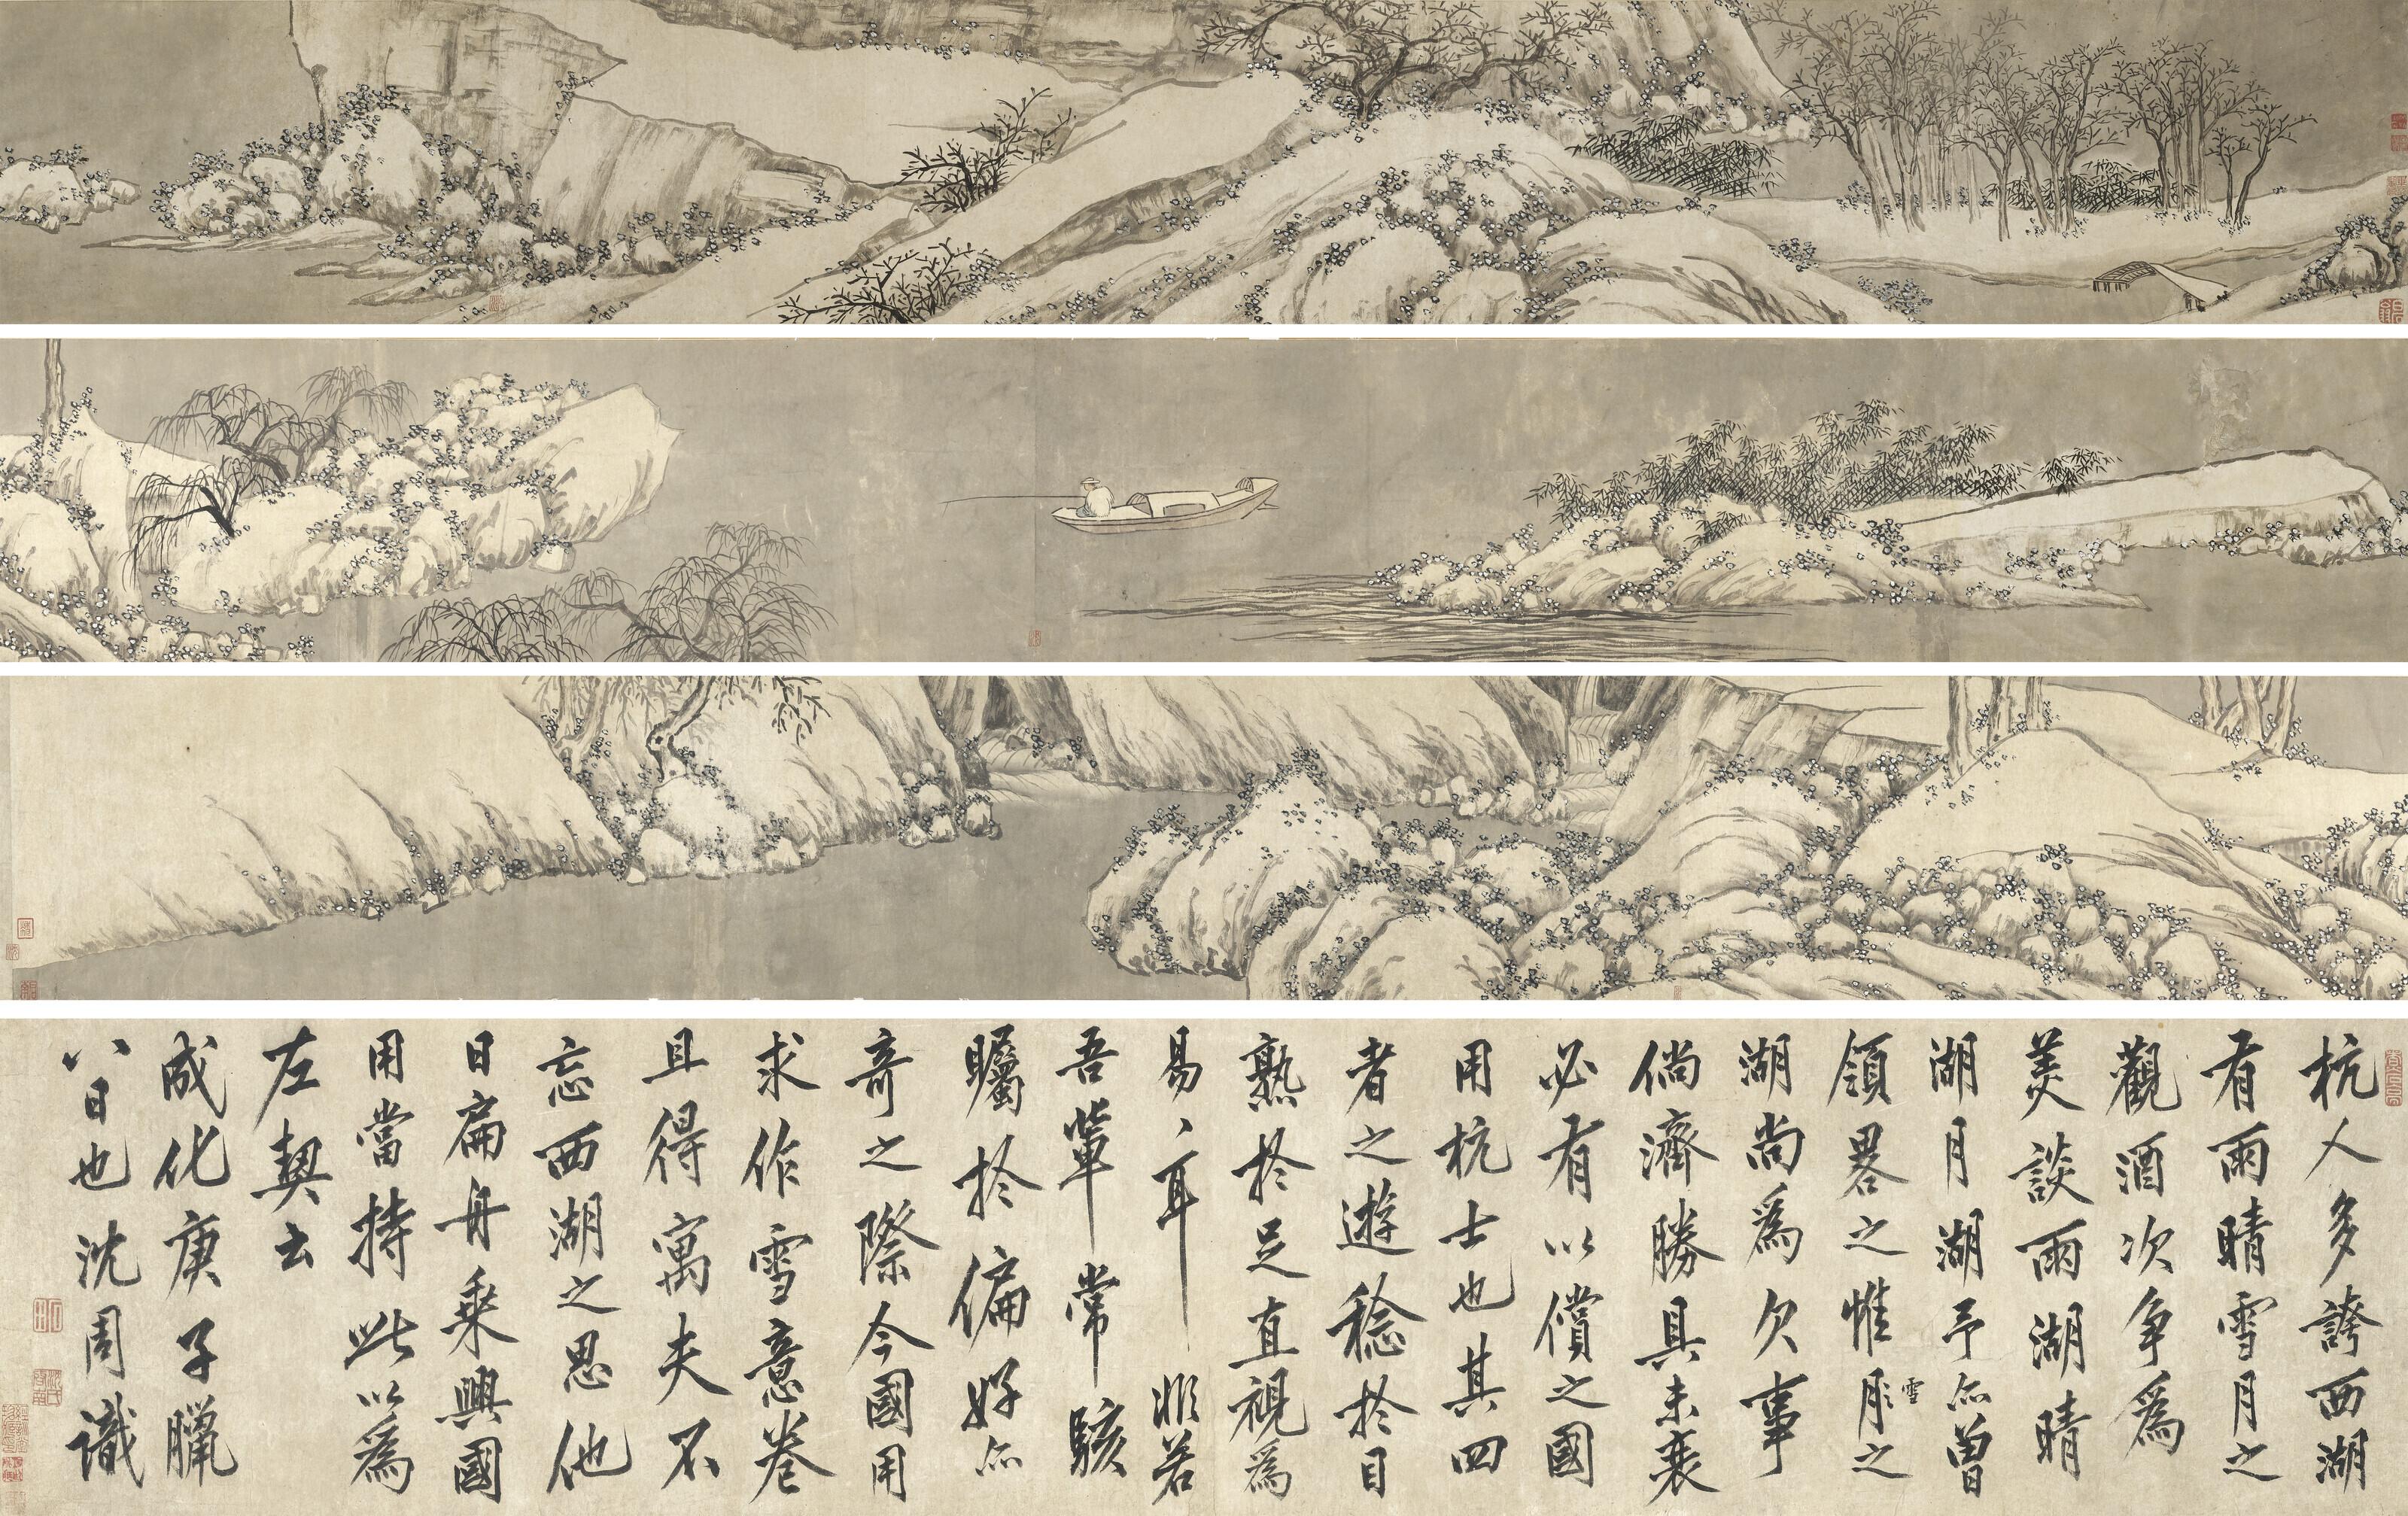 杭人多誇西湖
有雨晴雪月之
觀酒次爭為
美談雨湖晴
湖月湖予亦曾
領畧之惟月雪之
湖尚為欠事
倘濟勝具未衰
必有以償之國
用杭士也其四
者之遊稔於目
熟於足直視為
易〻耳非若
吾輩常駭
矚於偏好亦
奇之際今國用
求作雪意卷
且得寓夫不
忘西湖之思他
日扁舟乘興國
用當持此以為
左契云
成化庚子臘
八日也沈周識